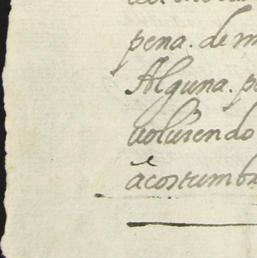 pena. de m
Alguna. p
voluiendo
acostumbr